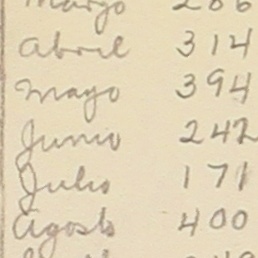 Março 286
Abril 314
Mayo 394
Junio 242
Julio 171
Agosto 400